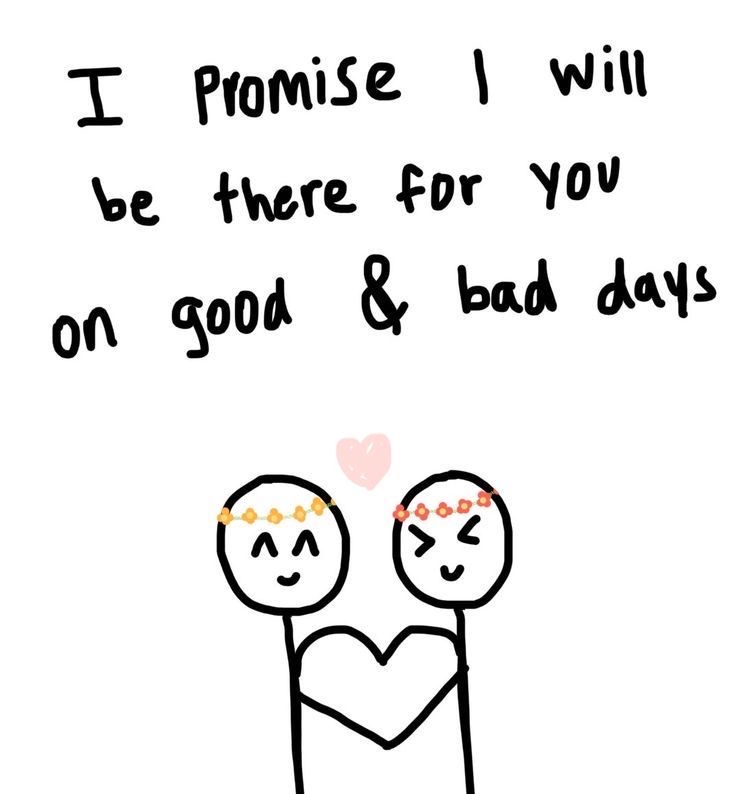 I Promise I will
be there for you
on good & bad days